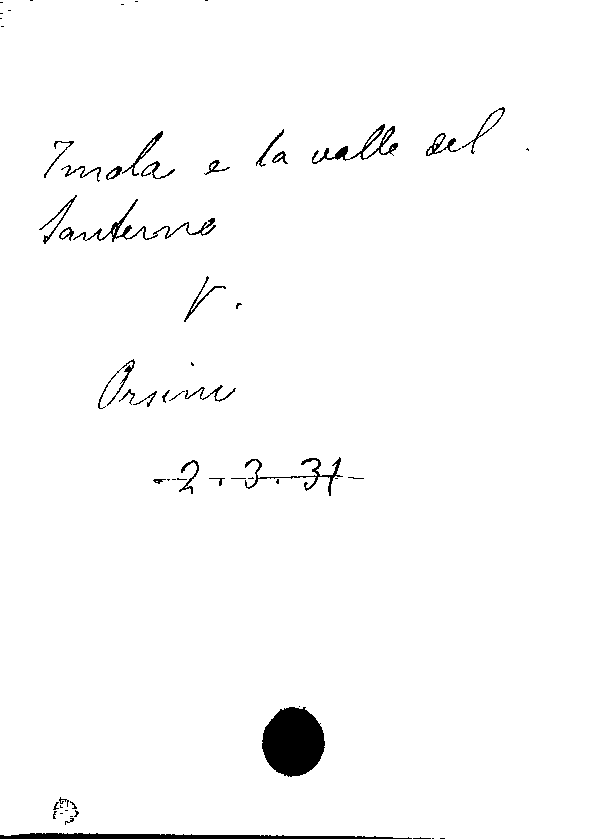 Imola e la valle del
Santerno
V.
Orsini
2.3.31